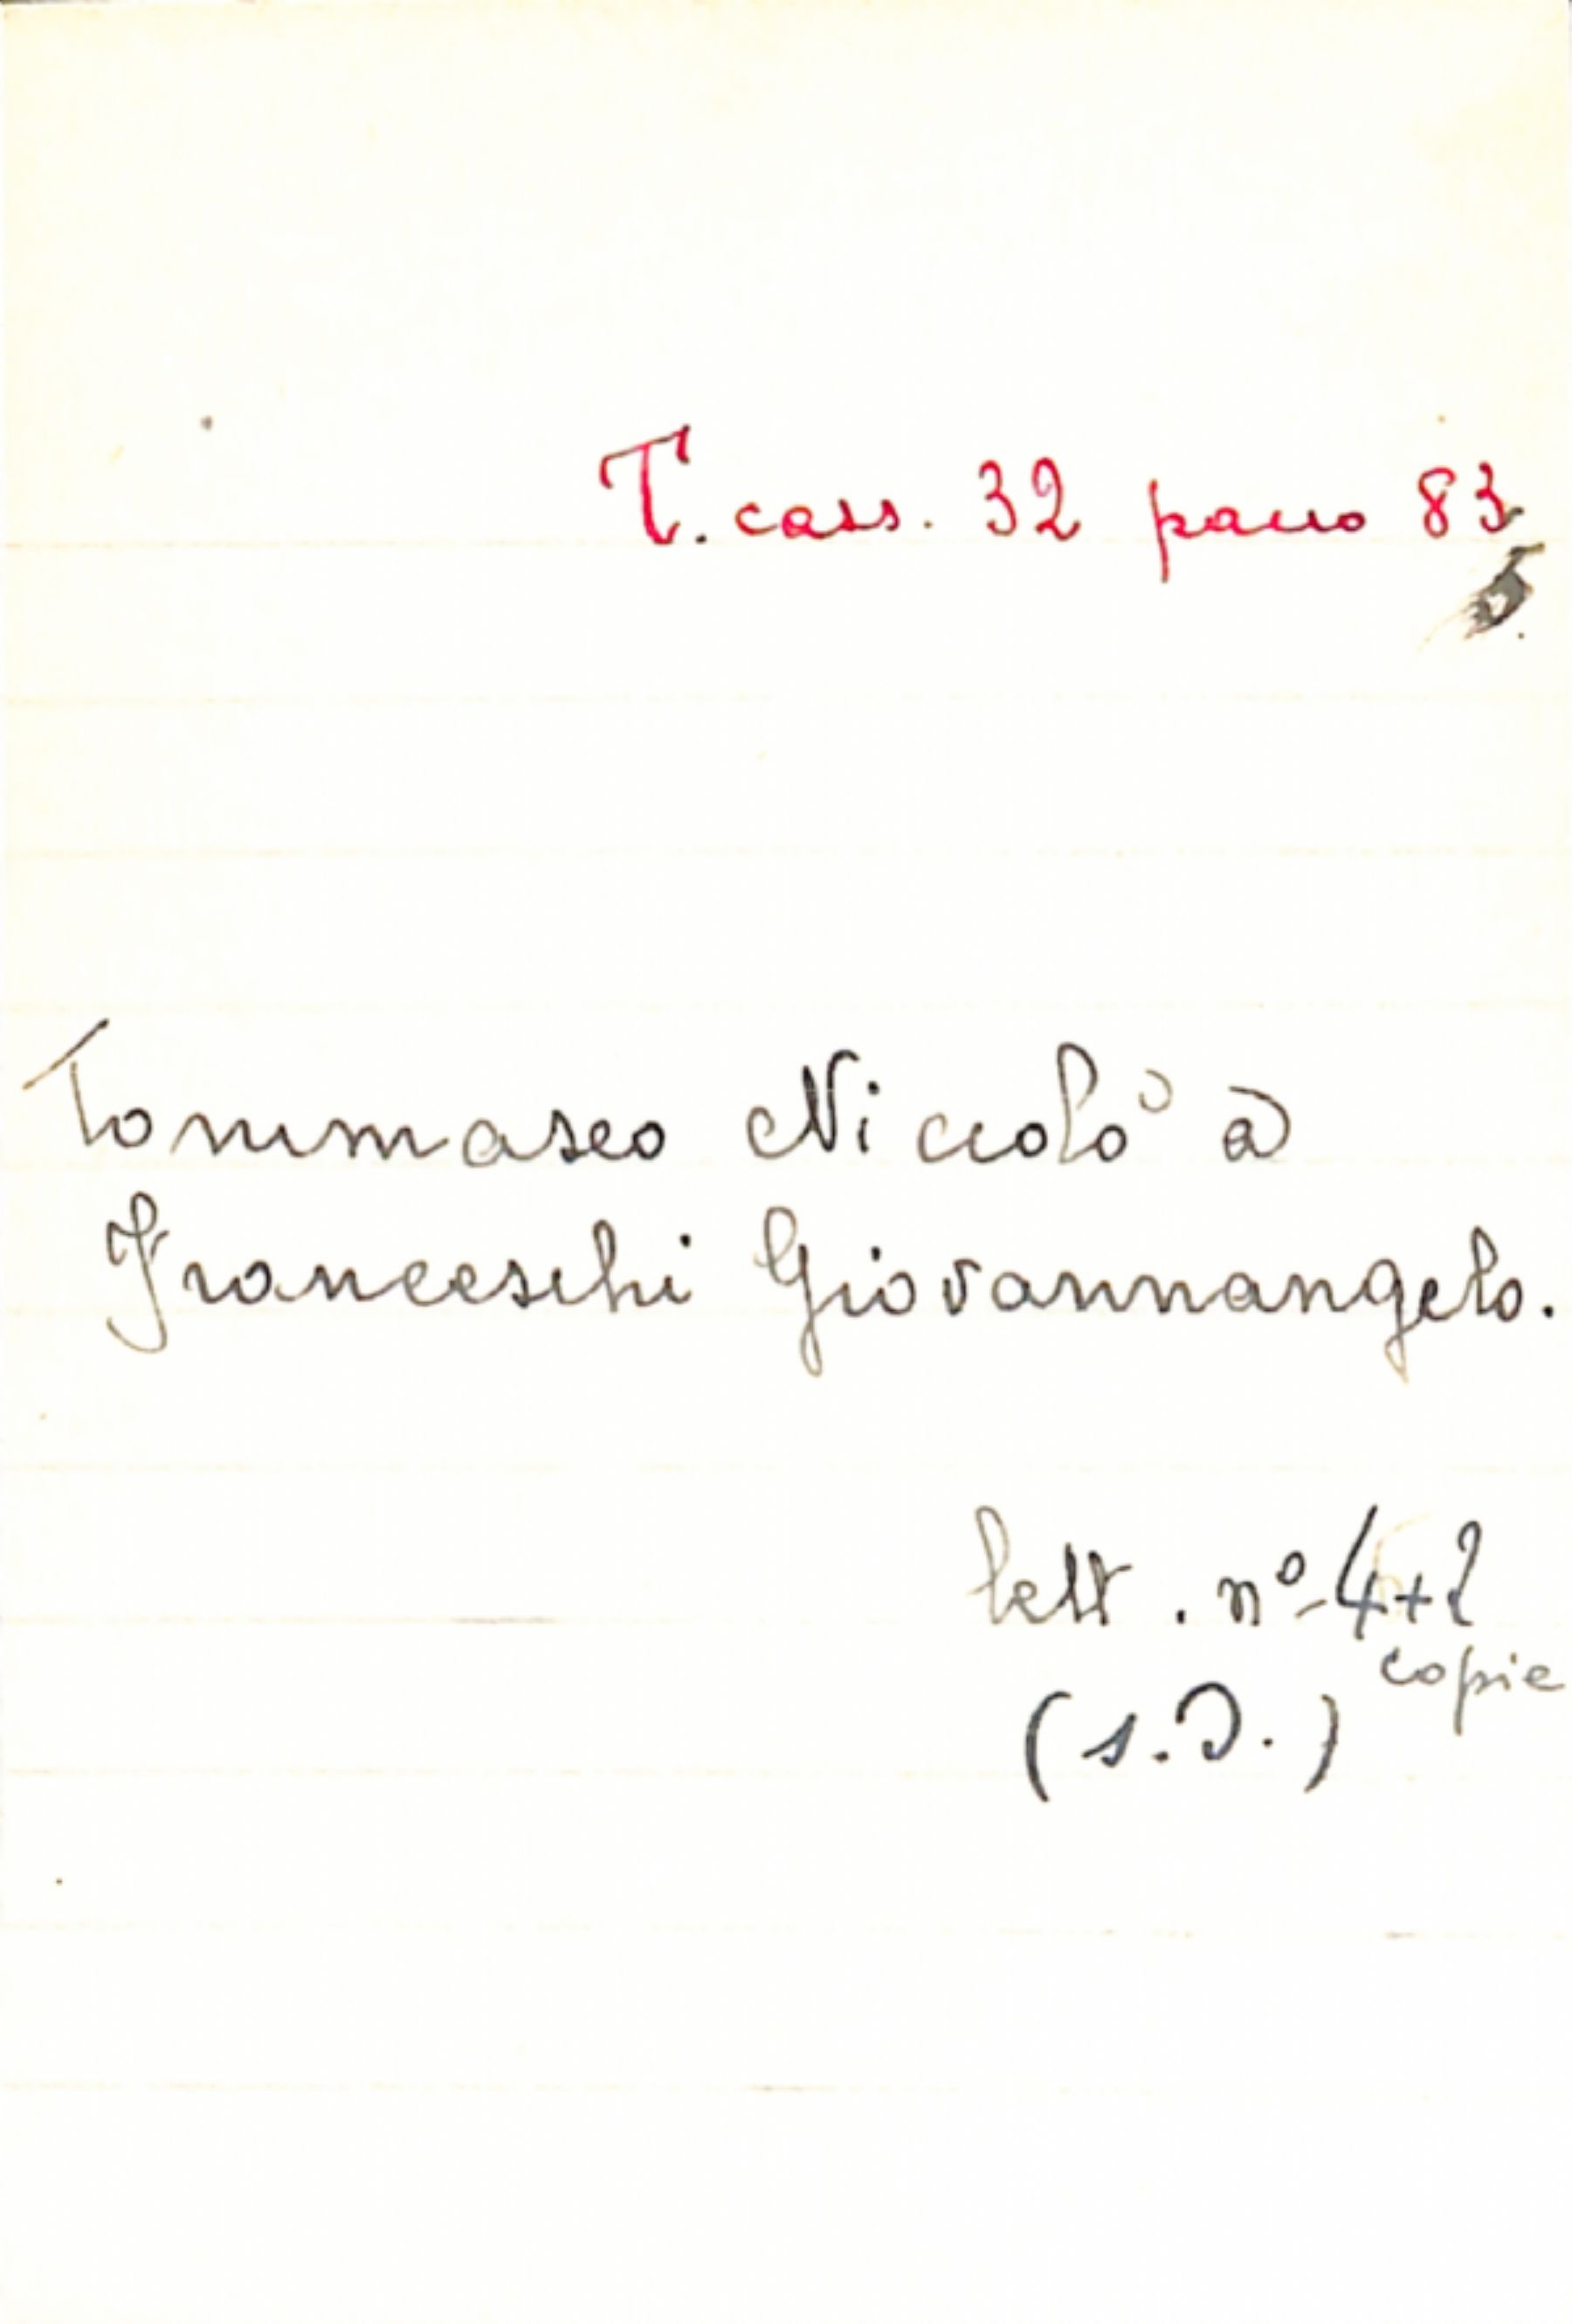 T. cass. 32 pacco 83
Tommaseo Niccolò a
Franceschi Giovannangelo.
lett. nº 4+2
copie
(s.D.)